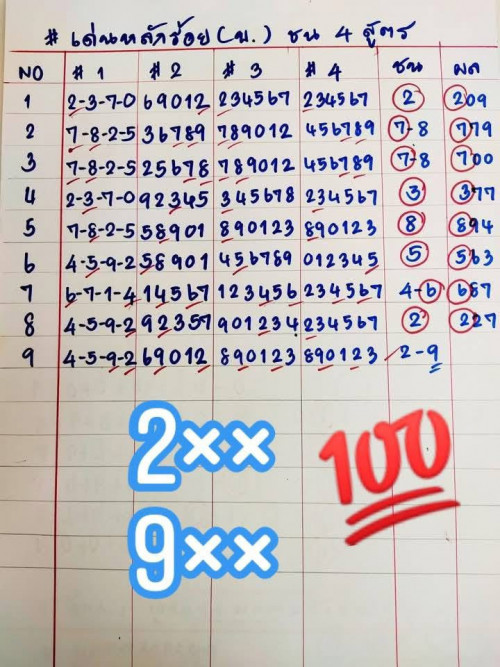 # เด่นหลักร้อย(บ.) ชน 4 สูตร
NO # 1 # 2 # 3 # 4 ชน ผล
1 2-3-7-0 69012 234567 234567 2 209
2 7-8-2-5 36789 789012 456789 7-8 779
3 7-8-2-5 25678 789012 456789 7-8 700
4 2-3-7-0 92345 345678 234567 3 377
5 7-8-2-5 58901 890123 890123 8 894
6 4-5-9-2 58901 456789 012345 5 563
7 6-7-1-4 14567 123456 234567 4-6 687
8 4-5-9-2 92357 901234 234567 2 227
9 4-5-9-2 69012 890123 890123 2-9
2××
100
9××